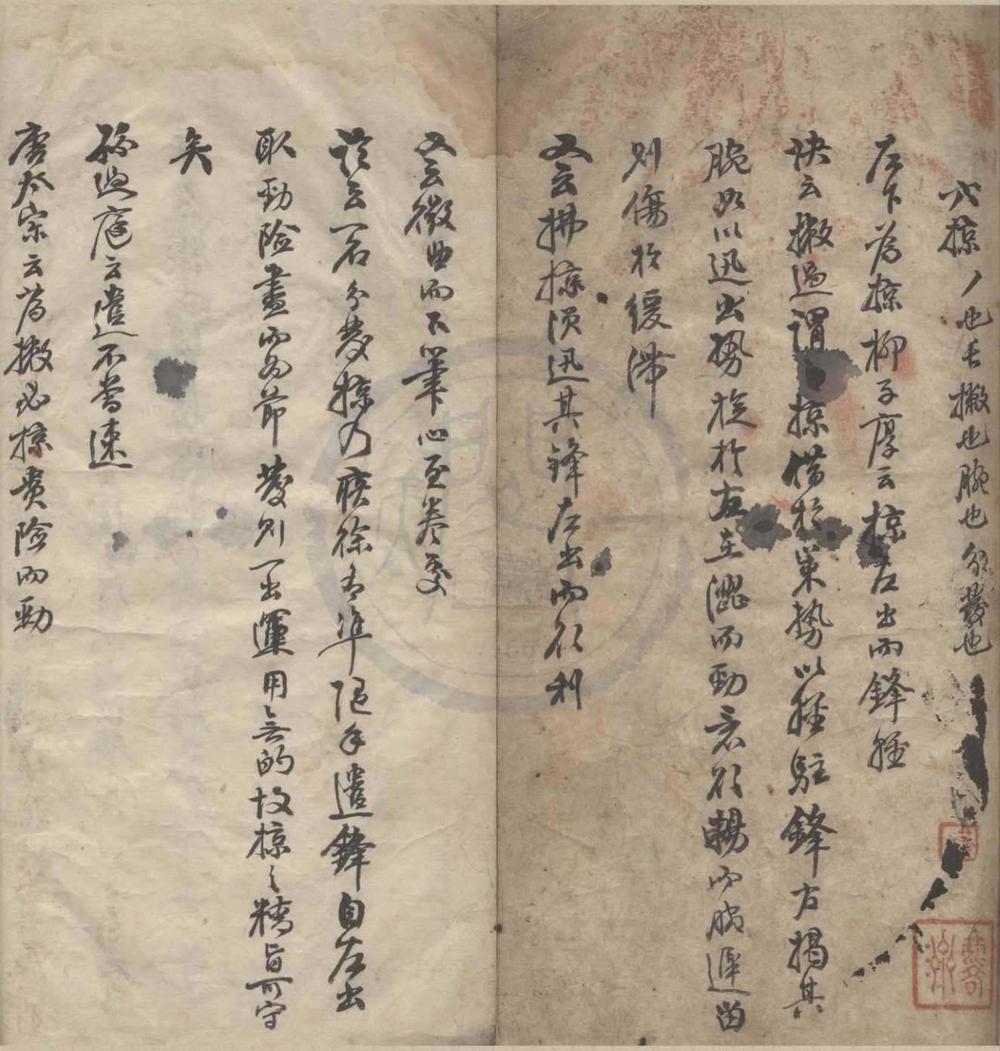 六掠丿也長撇也腕也分發也
左下為掠柳子厚云掠左出而鋒輕
訣云撇過謂之掠借於策勢以輕駐鋒右揭其
腕加以迅出勢旋於左在澀而勁意欲暢而婉遲留
則傷於緩滯
又云拂掠須迅其鋒左出而欲利
又云微曲而下筆心至卷處
論云一名分發掠乃疾徐有準隨手遣鋒自左出
取勁險盡而為節發則一出運用無的故掠之精旨可守
矣
孫過庭云遣不常速
唐太宗云為撇必掠貴險而勁